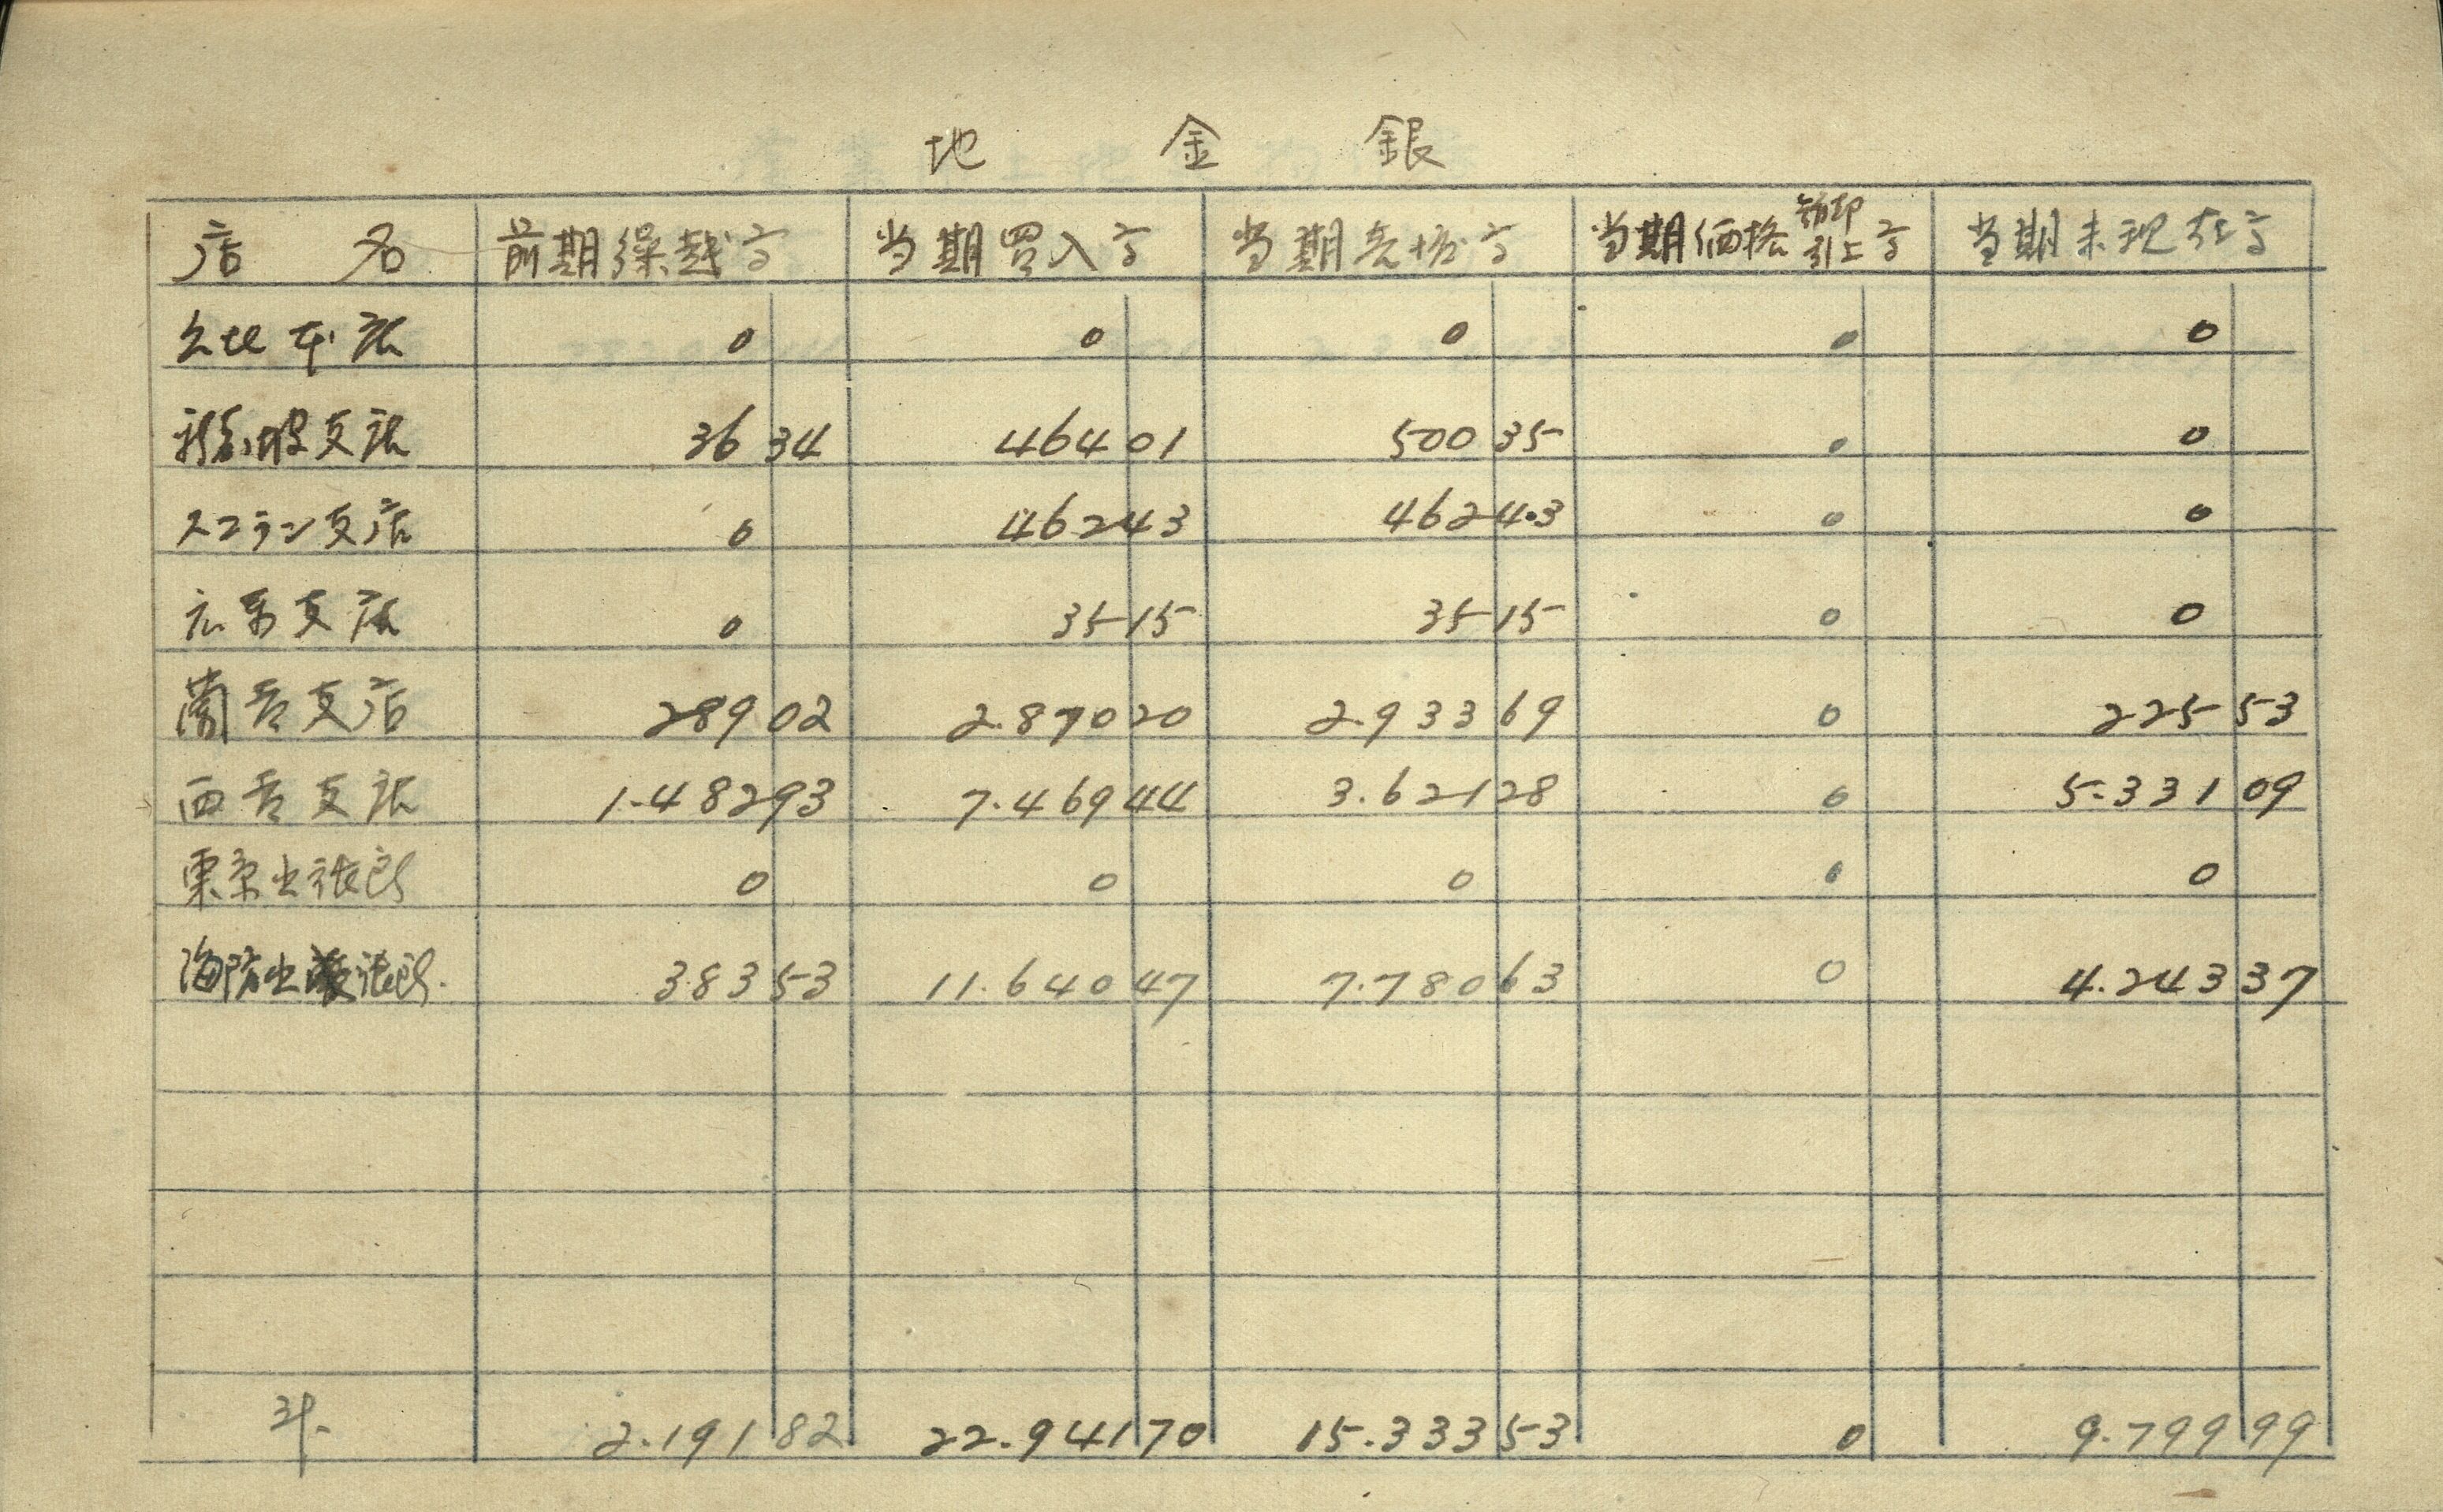 地金銀
店名 前期繰越高 当期買入高 当期売払高 当期価格引上高 当期末現在高
台北本店 0 0 0 0 0
新嘉坡支店 36 34 464 01 500 35 0 0
スマラン支店 0 462 43 462 43 0 0
広東支店 0 35 15 35 15 0 0
蘭貢支店 289 02 2.870 20 2.933 69 0 225 53
西貢支店 1.482 93 7.469 44 3.621 28 0 5.331 09
東京出張所 0 0 0 0 0
海防出張所 383 53 11.640 47 7.780 63 0 4.243 37
計 2.191 82 22.941 70 15.333 53 0 9.799 99